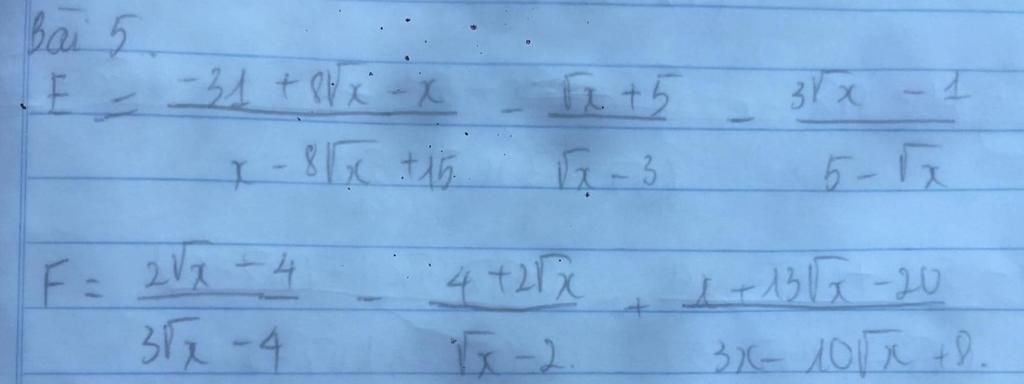 Bài 5.
E = (-31 + 8√x - x)/(x - 8√x + 15) - (√x + 5)/(√x - 3) - (3√x - 1)/(5 - √x)
F = (2√x - 4)/(3√x - 4) - (4 + 2√x)/(√x - 2) + (x + 13√x - 20)/(3x - 10√x + 8)